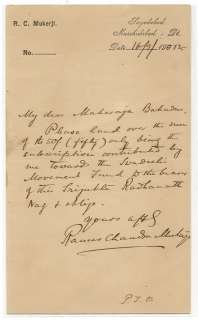 R. C. Mukerji.
No.
Murshidabad
Date 16/9/
My dear Maharaja Bahadur,
Please hand over the sum
of Rs 50/- (fifty) only being the
subscription contributed by
me towards the Swadeshi
Movement Fund to the bearer
of this Srijukta Radhanath
Nag & oblige.
Yours affly
Rames Chandra
P.T.O.